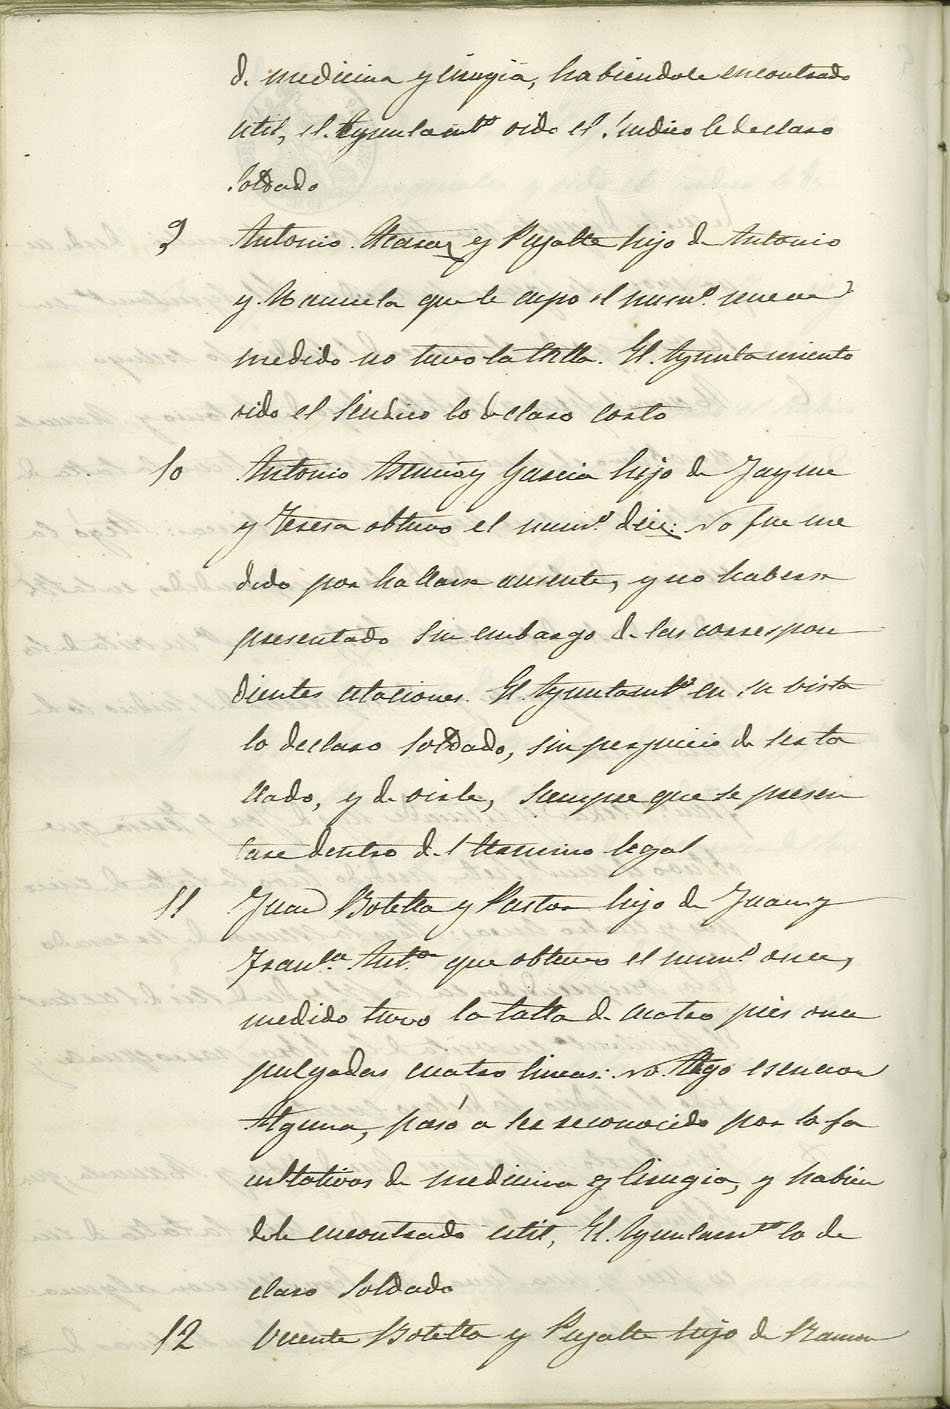 de medicina y Cirugia, habiendole encontrado
util, el Ayuntamto oido el Sindico le declaro
Soldado
9 Antonio Alcaraz y Pujalte hijo de Antonio
y Manuela que le cupo el numo nueve
medido no tuvo la talla. El Ayuntamiento
oido el Sindico lo declaro Corto
10 Antonio Asencio y Garcia hijo de Jayme
y Teresa obtuvo el numo diez: No fue me
dido por hallarse ausente, y no haberse
presentado sin embargo de las correspon
dientes citaciones. El Ayuntamto en su vista
lo declaro Soldado, sin perjuicio de ser ta
llado, y de oirle, siempre que se presen
tase dentro del termino legal
11 Juan Botella y Pastor hijo de Juan y
Franca Anta que obtuvo el numo once,
medido tuvo la talla de cuatro pies once
pulgadas cuatro lineas: no Alego esencion
Alguna, pasó a ser reconocido por lo fa
cultativos de medicina y Cirugia, y habien
dole encontrado util, El Ayuntamto lo de
claro Soldado
12 Vicente Botella y Pujalte hijo de Ramon